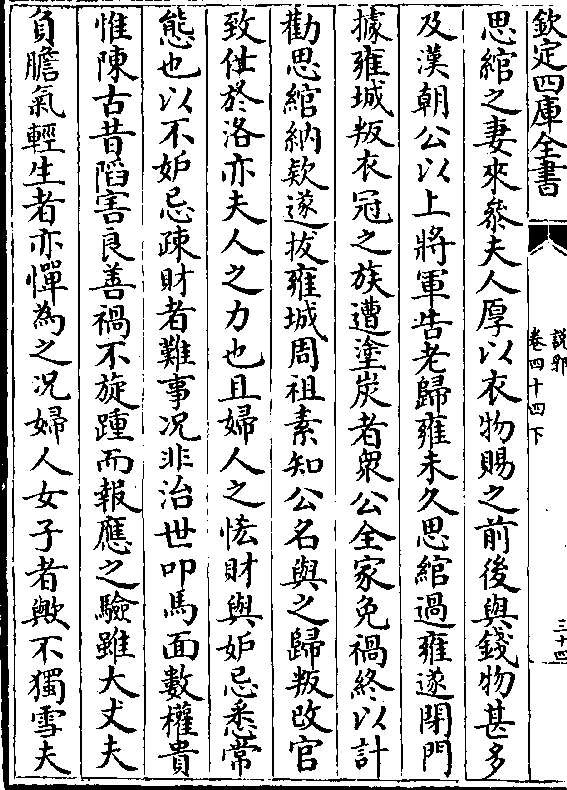 欽定四庫全書
說郛
卷四十四下
三十四
思綰之妻來叅夫人厚以衣物賜之前後與錢物甚多
及漢朝公以上將軍告老歸雍未久思綰過雍遂閉門
據雍城叛衣冠之族遭塗炭者衆公全家免禍終以計
勸思綰納欵遂拔雍城周祖素知公名與之歸叛改官
致仕於洛亦夫人之力也且婦人之恡財與妒忌悉常
態也以不妒忌疎財者難事况非治世叩馬面數權貴
惟陳古昔䧟害良善禍不旋踵而報應之驗雖大丈夫
負膽氣輕生者亦憚為之况婦人女子者歟不獨雪夫